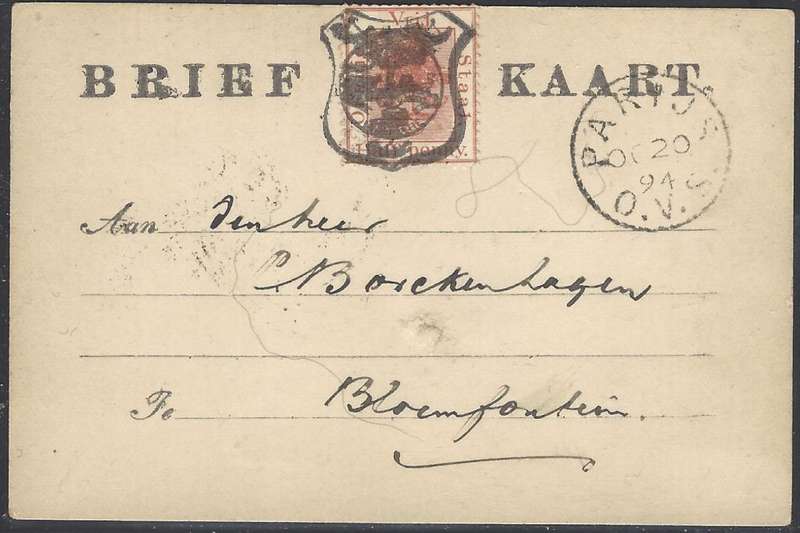 BRIEF KAART.
Vrij
Staat
Half penny.
PARIJS
OC 20
94
O.V.S.
Aan den heer
C Borckenhagen
Te Bloemfontein.